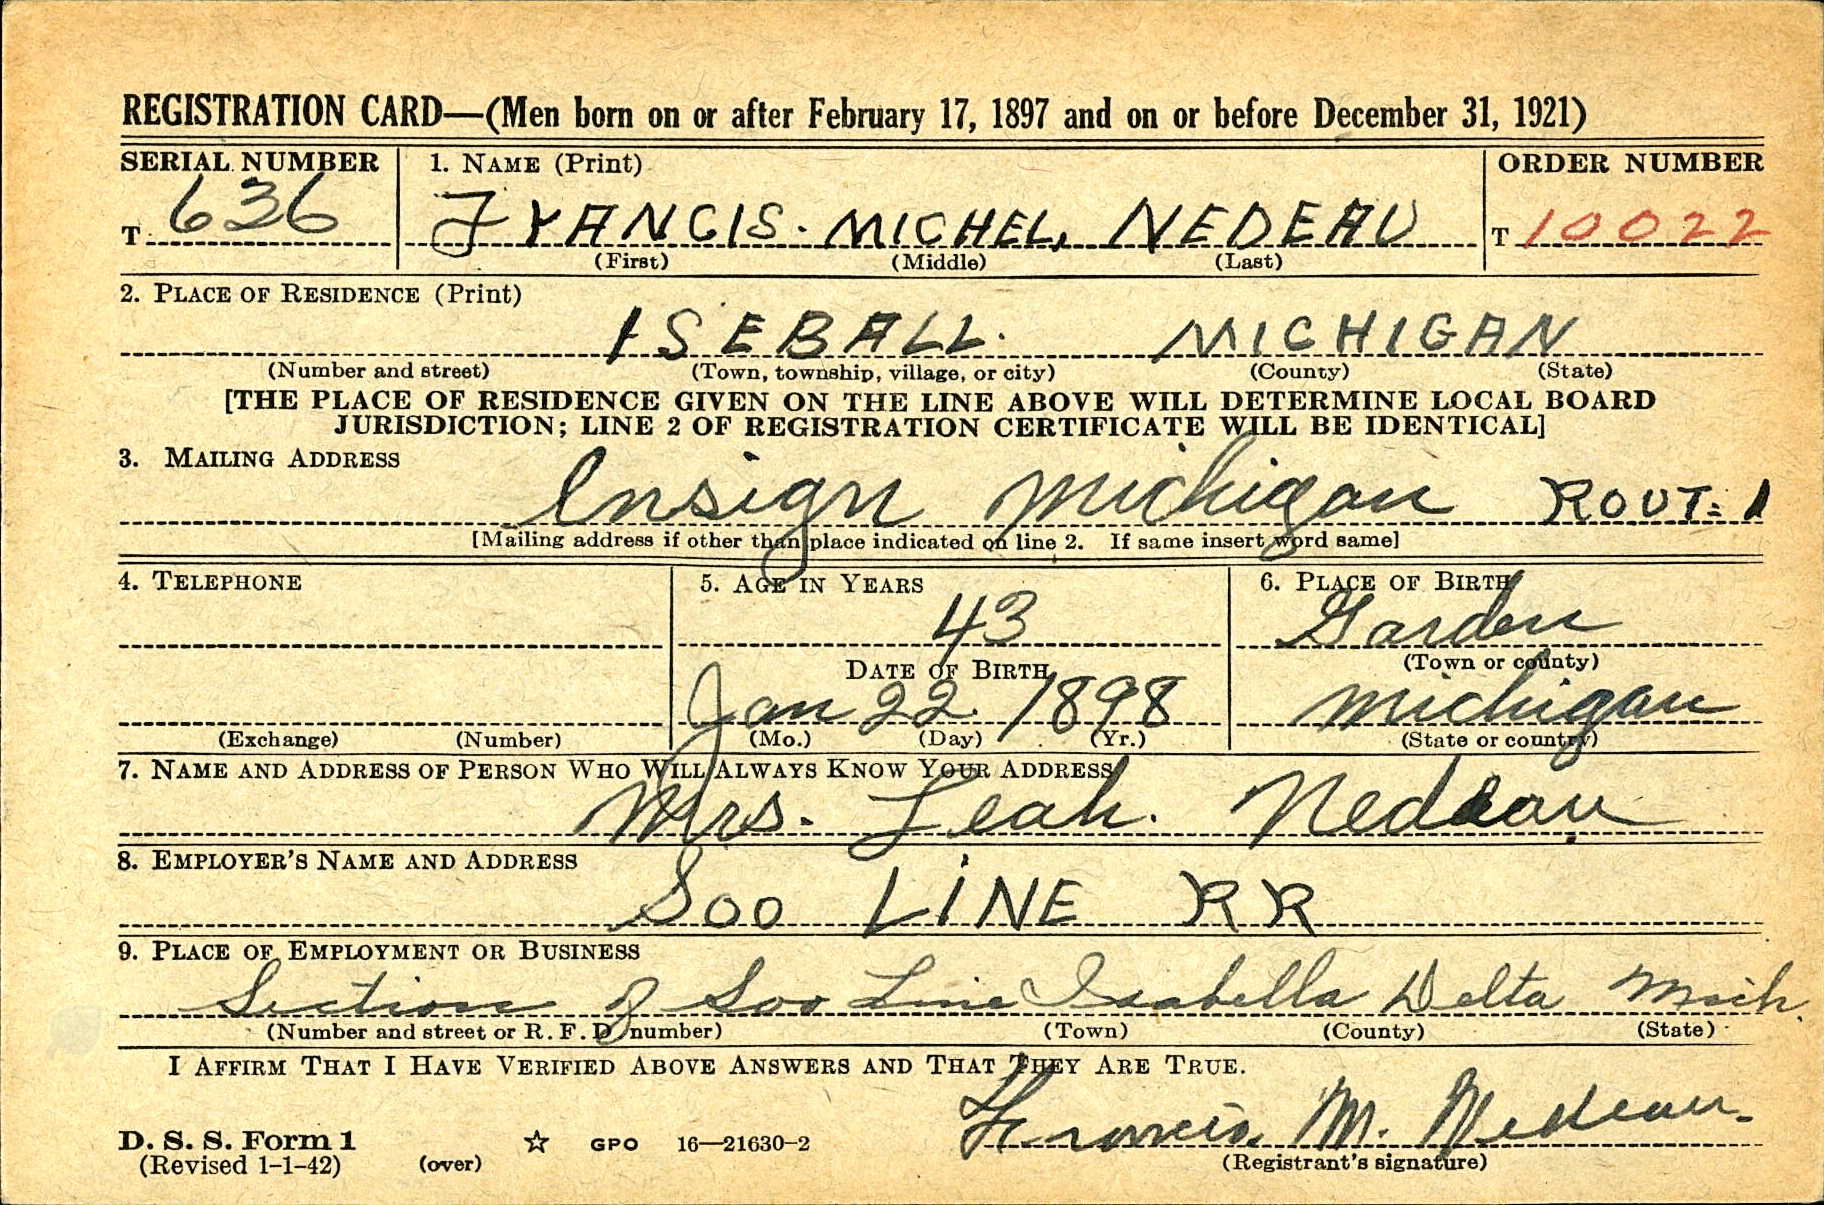 REGISTRATION CARD—(Men born on or after February 17, 1897 and on or before December 31, 1921)
SERIAL NUMBER 1. NAME (Print) ORDER NUMBER
T 636 FRANCIS. MICHEL, NEDEAU T 10022
(First) (Middle) (Last)
2. PLACE OF RESIDENCE (Print)
ISEBALL. MICHIGAN
(Number and street) (Town, township, village, or city) (County) (State)
[THE PLACE OF RESIDENCE GIVEN ON THE LINE ABOVE WILL DETERMINE LOCAL BOARD
JURISDICTION; LINE 2 OF REGISTRATION CERTIFICATE WILL BE IDENTICAL]
3. MAILING ADDRESS
Ensign Michigan ROUT: 1
[Mailing address if other than place indicated on line 2. If same insert word same]
4. TELEPHONE 5. AGE IN YEARS 6. PLACE OF BIRTH
43 Garden
DATE OF BIRTH (Town or county)
Jan 22 1898 Michigan
(Exchange) (Number) (Mo.) (Day) (Yr.) (State or country)
7. NAME AND ADDRESS OF PERSON WHO WILL ALWAYS KNOW YOUR ADDRESS
Mrs. Leah. Nedeau
8. EMPLOYER'S NAME AND ADDRESS
Soo LINE RR
9. PLACE OF EMPLOYMENT OR BUSINESS
Section of Soo Line Isabella Delta Mich.
(Number and street or R. F. D. number) (Town) (County) (State)
I AFFIRM THAT I HAVE VERIFIED ABOVE ANSWERS AND THAT THEY ARE TRUE.
Francis M. Nedeau.
D. S. S. Form 1 ☆ GPO 16—21630-2
(Revised 1-1-42) (over) (Registrant's signature)